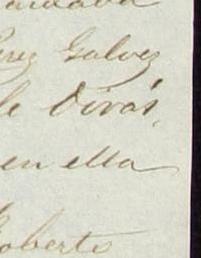 erez Galvez
le Diras,
en ella
oberto